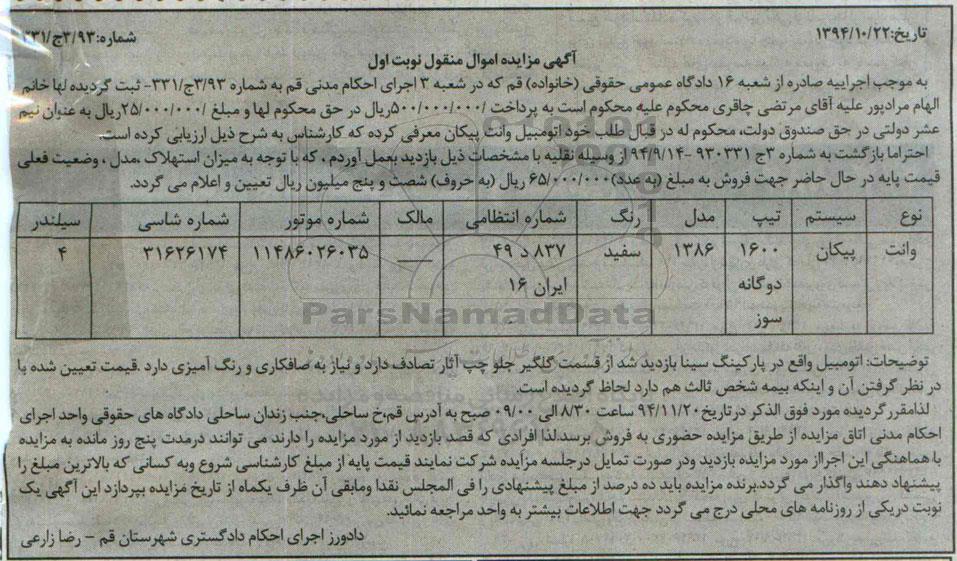 تاریخ:۱۳۹۴/۱۰/۲۲
شماره:۳/۹۳ج/۳۳۱
آگهی مزایده اموال منقول نوبت اول
به موجب اجراییه صادره از شعبه ۱۶ دادگاه عمومی حقوقی (خانواده) قم که در شعبه ۳ اجرای احکام مدنی قم به شماره ۳/۹۳ج/۳۳۱- ثبت گردیده لها خانم
الهام مرادپور علیه آقای مرتضی چاقری محکوم علیه محکوم است به پرداخت /۵۰۰/۰۰۰/۰۰۰ریال در حق محکوم لها و مبلغ /۲۵/۰۰۰/۰۰۰ریال به عنوان نیم
عشر دولتی در حق صندوق دولت، محکوم له در قبال طلب خود اتومبیل وانت پیکان معرفی کرده که کارشناس به شرح ذیل ارزیابی کرده است.
احتراما بازگشت به شماره ۳ج ۹۳۰۳۳۱ -۹۴/۹/۱۴ از وسیله نقلیه با مشخصات ذیل بازدید بعمل آوردم ، که با توجه به میزان استهلاک ،مدل ، وضعیت فعلی
قیمت پایه در حال حاضر جهت فروش به مبلغ (به عدد)۶۵/۰۰۰/۰۰۰ ریال (به حروف) شصت و پنج میلیون ریال تعیین و اعلام می گردد.
نوع سیستم تیپ مدل رنگ شماره انتظامی مالک شماره موتور شماره شاسی سیلندر
وانت پیکان ۱۶۰۰ ۱۳۸۶ سفید ۸۳۷ د ۴۹ ___ ۱۱۴۸۶۰۲۶۰۳۵ ۳۱۶۲۶۱۷۴ ۴
دوگانه ایران ۱۶
سوز
ParsNamadData
توضیحات: اتومبیل واقع در پارکینگ سینا بازدید شد از قسمت گلگیر جلو چپ آثار تصادف دارد و نیاز به صافکاری و رنگ آمیزی دارد .قیمت تعیین شده با
در نظر گرفتن آن و اینکه بیمه شخص ثالث هم دارد لحاظ گردیده است.
لذامقررگردیده مورد فوق الذکر درتاریخ۹۴/۱۱/۲۰ ساعت ۸/۳۰ الی ۰۹/۰۰ صبح به آدرس قم،خ ساحلی،جنب زندان ساحلی دادگاه های حقوقی واحد اجرای
احکام مدنی اتاق مزایده از طریق مزایده حضوری به فروش برسد.لذا افرادی که قصد بازدید از مورد مزایده را دارند می توانند درمدت پنج روز مانده به مزایده
با هماهنگی این اجرااز مورد مزایده بازدید ودر صورت تمایل درجلسه مزایده شرکت نمایند قیمت پایه از مبلغ کارشناسی شروع وبه کسانی که بالاترین مبلغ را
پیشنهاد دهند واگذار می گردد.برنده مزایده باید ده درصد از مبلغ پیشنهادی را فی المجلس نقدا ومابقی آن ظرف یکماه از تاریخ مزایده بپردازد این آگهی یک
نوبت دریکی از روزنامه های محلی درج می گردد جهت اطلاعات بیشتر به واحد مراجعه نمائید.
دادورز اجرای احکام دادگستری شهرستان قم - رضا زارعی